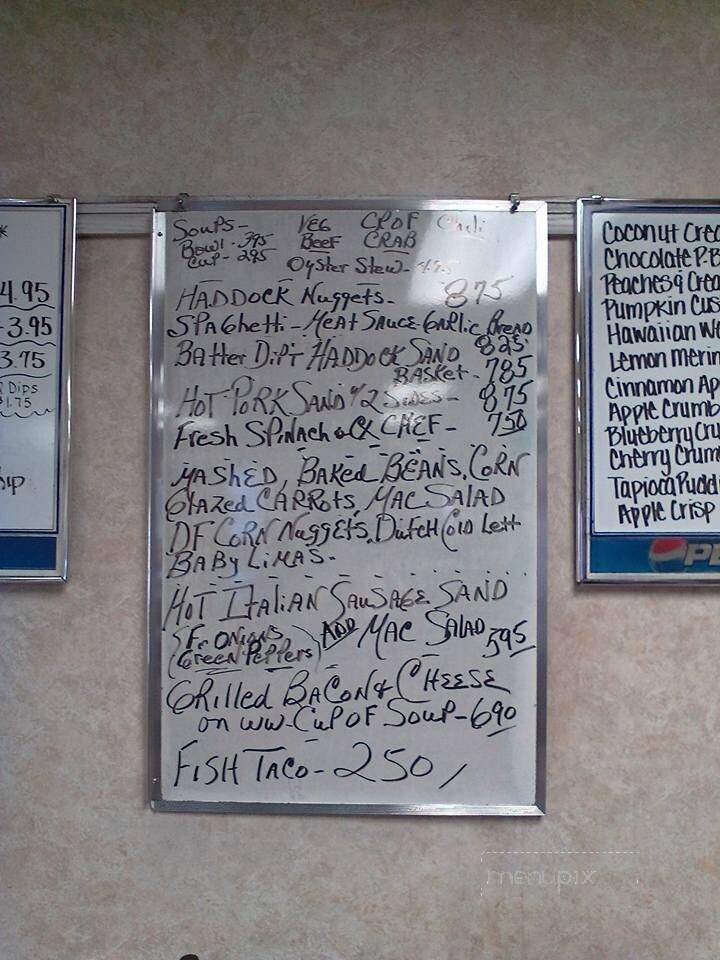 *
4.95
3.95
3.75
Dips
1.75
Soups- Veg CR OF Chili
Bowl - 395 Beef CRAB
Cup - 295
Oyster Stew-
HADDOCK Nuggets- 875
SPAGhetti - MeAt SAuce-GARlic BreAD
825
BAtter DiPT HADDOCK SAND
BASKet- 785
HOT PORK SAND w/2 SiDES- 875
Fresh SPiNAch CHEF- 750
MASHED, BAKed BEANS, CORN
GlAzed CARROtS, MAC SALAD
DF CORN NuggEtS, DutcH Cold Lett
BABy LiMAS-
HOT ITALiAN SAUSAGE SAND
(Fr ONiONS ADD MAC SALAD 595
GREEN PePPers)
GRilled BACON & CHEESE
on ww-CuP OF SOUP-690
FiSH TACO-250/
Coconut Crea
Chocolate P.B
Peaches & Crea
Pumpkin Cus
Hawaiian We
Lemon Merin
Cinnamon Ap
Apple Crumb
Blueberry Cru
Cherry Crum
Tapioca Pudd
Apple Crisp
PE
menupix